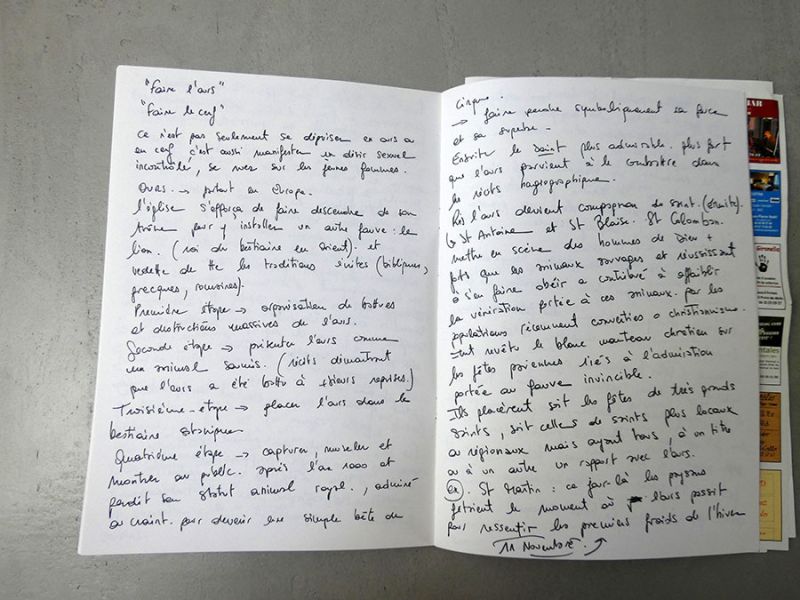 "Faire l'ours"
"Faire le cerf"
Ce n'est pas seulement se déguiser en ours ou
en cerf c'est aussi manifester un désir sexuel
incontrôlé, se ruer sur les jeunes femmes.
Ours. → partout en Europe.
l'église s'efforça de faire descendre de son
trône pour y installer un autre fauve : le
lion. (roi du bestiaire en orient). et
vedette de tte les traditions écrites (bibliques,
grecques, romaines).
Première étape → organisation de battues
et destructions massives de l'ours.
Seconde étape → présenter l'ours comme
un animal soumis. (récits démontrant
que l'ours a été battu à plusieurs reprises.)
Troisième étape → placer l'ours dans le
bestiaire satanique
Quatrième étape → capturer, museler et
montrer au public. après l'an 1000 et
perdit son statut animal royal., admiré
ou craint. pour devenir une simple bête de
cirque.
→ faire perdre symboliquement sa force
et sa superbe -
Ensuite le saint plus admirable. plus fort
que l'ours parvient à le combattre dans
les récits hagiographiques.
Puis l'ours devient compagnon du saint. (ermite).
↳ St Antoine et St Blaise. St Colomban.
mettre en scène des hommes de Dieu +
forts que les animaux sauvages et réussissant
à s'en faire obéir a contribué à affaiblir
la vénération portée à ces animaux. par les
populations récemment converties o christianisme.
ont revêtu le blanc manteau chrétien sur
les fêtes païennes liées à l'admiration
portée au fauve invincible.
Ils placèrent soit les fêtes de très grands
saints, soit celles de saints plus locaux
ou régionaux mais ayant tous, à un titre
ou à un autre un rapport avec l'ours.
Ex. St Martin : ce jour-là les paysans
fêtaient le moment où l'ours
pour ressentir les premiers froids de l'hiver
11 Novembre.